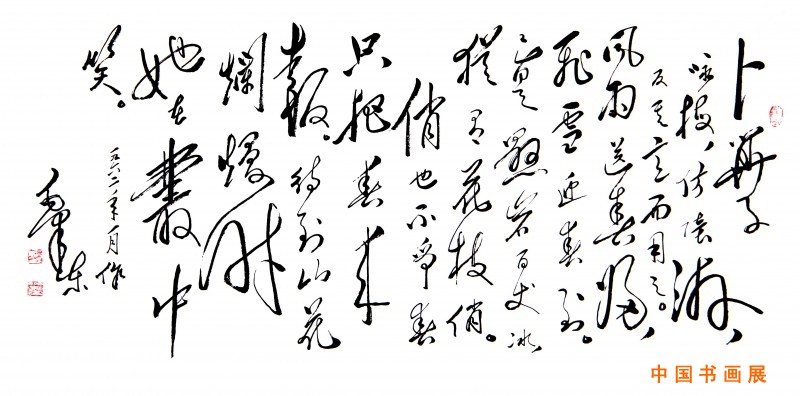 卜算子
咏梅，依陸游，
反其意而用之。
风雨送春归，
飛雪迎春到。
已是懸岩百丈冰，
猶有花枝俏。
俏也不爭春
只把春来
報。待到山花
爛熳时
她在叢中
笑。
一九六二年一月作
毛泽东
中国书画展